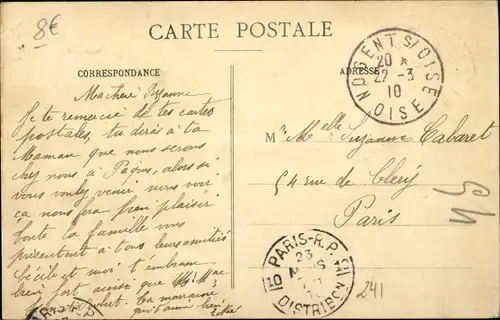 8€
CARTE POSTALE
CORRESPONDANCE
ADRESSE
Ma chère Suzanne
Je te remercie de tes cartes
postales, tu diras à ta
Maman que nous serons
chez nous à Pâques, alors si
vous voulez venir nous voir
ça nous fera bien plaisir
toute la famille vous
présentent à tous leurs amitiés
Cécile et moi t'embrassons
bien fort ainsi que
Ta marraine
qui t'aime bien
NOGENT S/OISE
20 *
22 -3
10
OISE
Melle Suzanne Cabaret
54 rue de Cléry
Paris
PARIS-R.P.
23
10
DISTRIBON
241